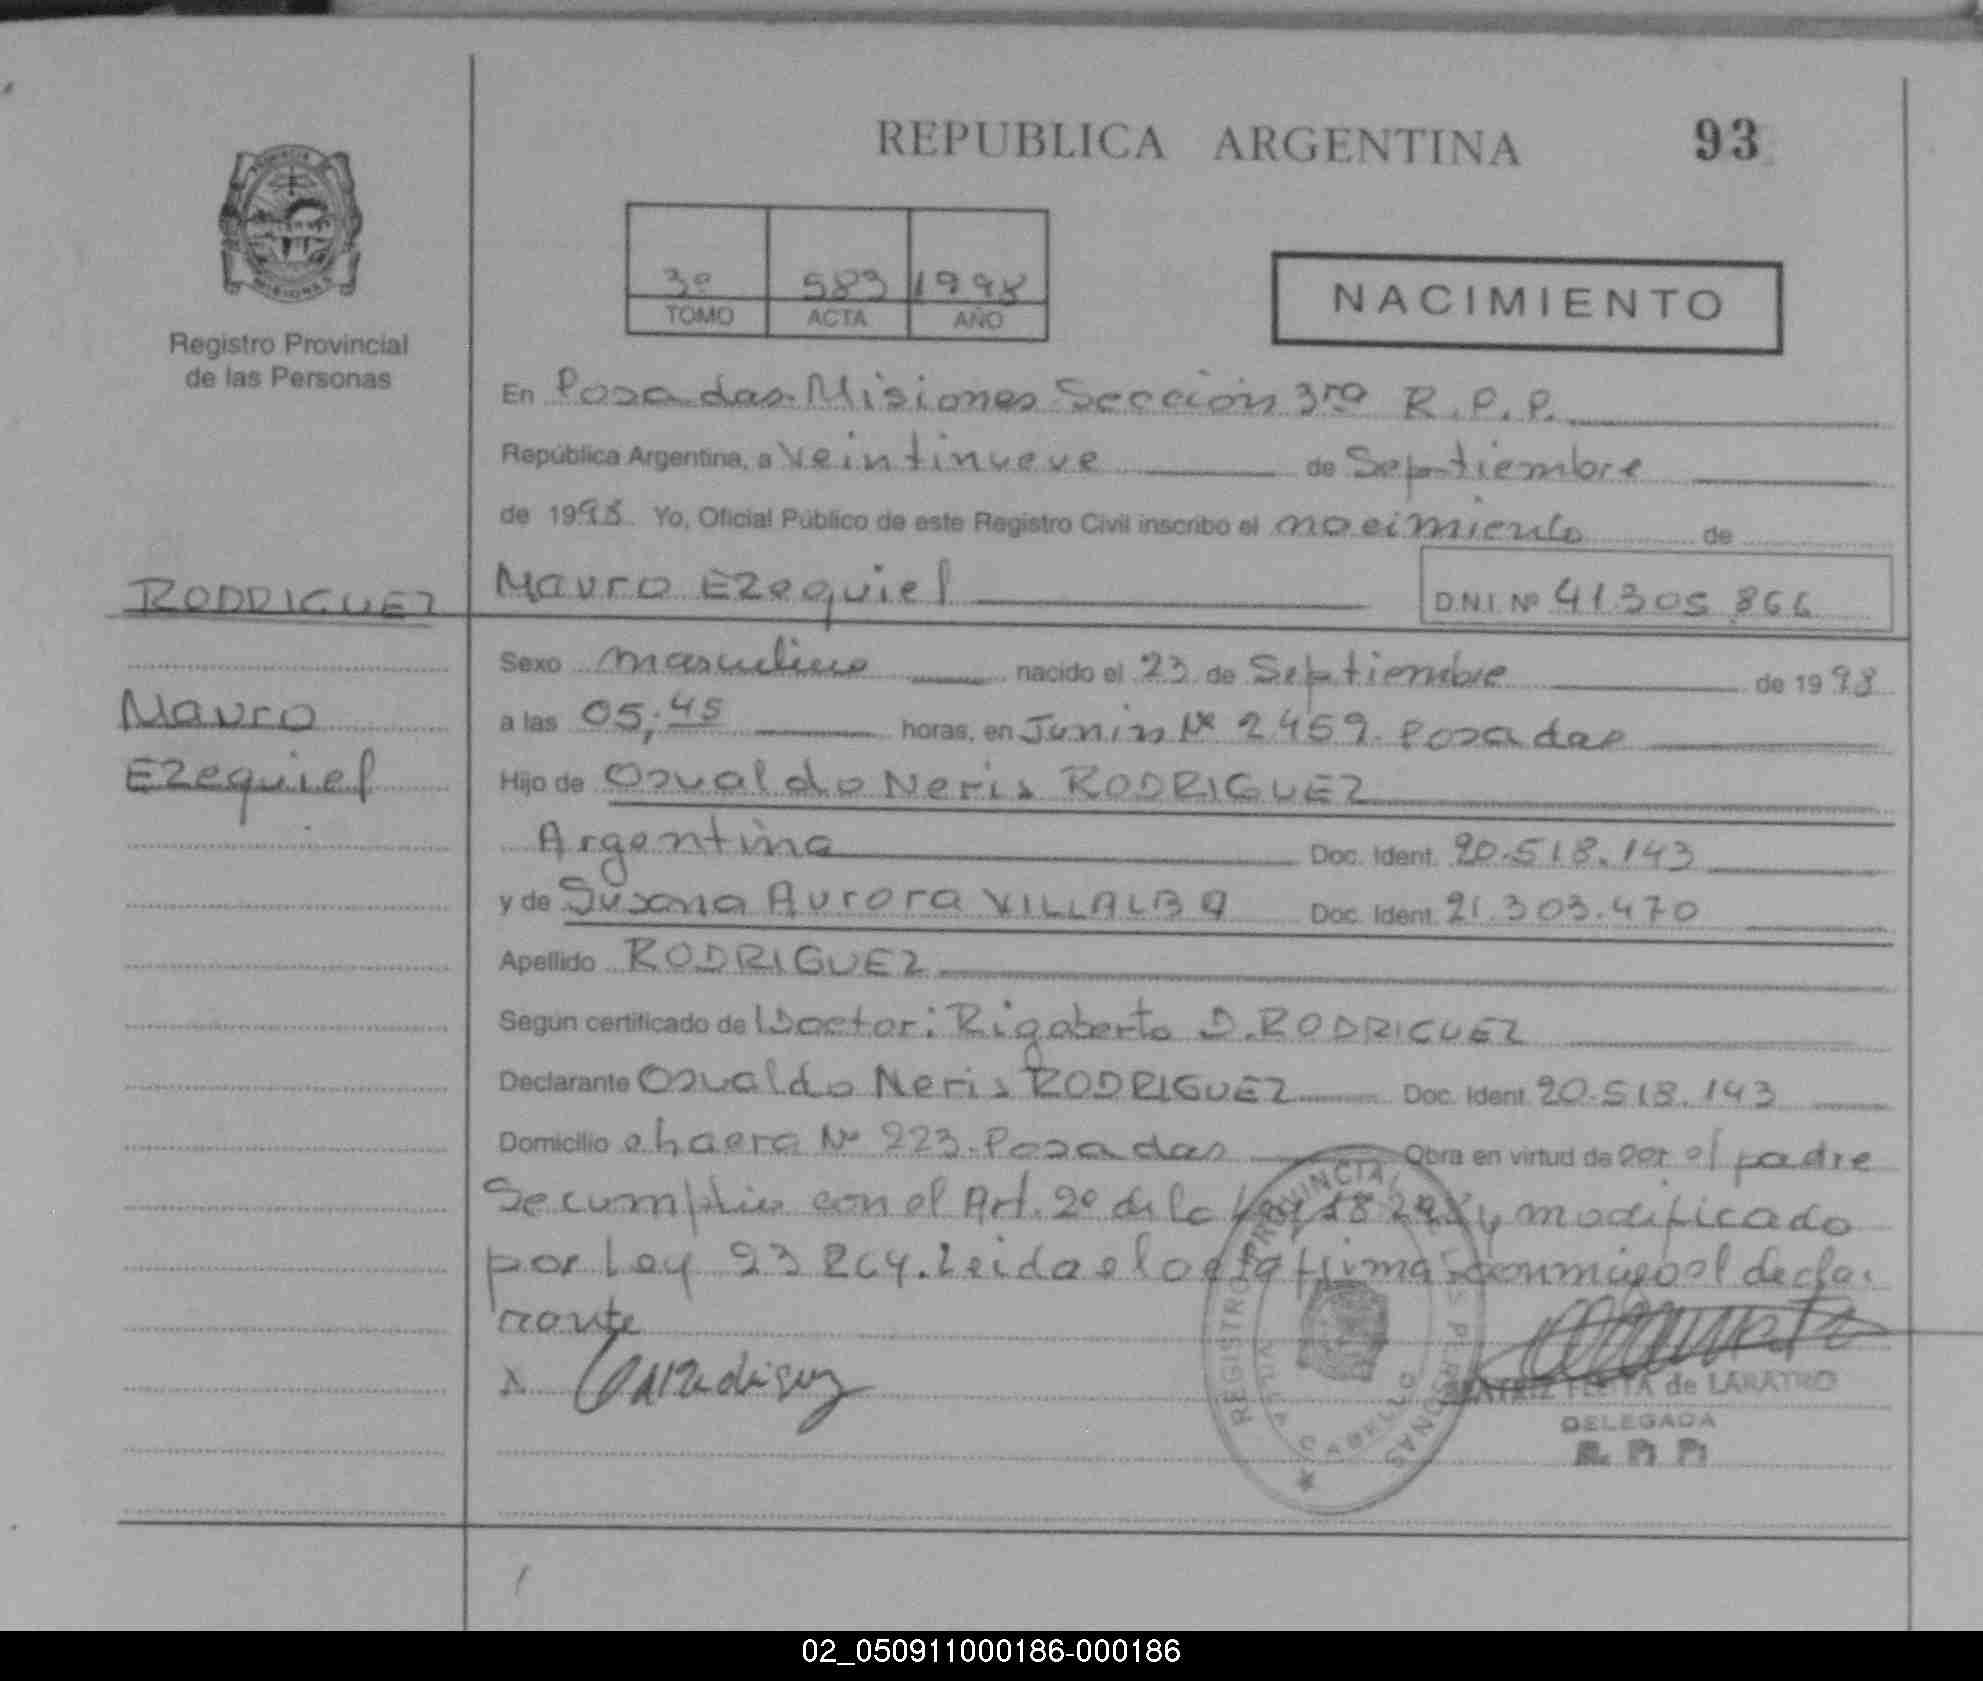 REPUBLICA ARGENTINA 93
MISIONES
Registro Provincial
de las Personas
3º 583 1998
TOMO ACTA AÑO
NACIMIENTO
En Posadas-Misiones Sección 3ra R.P.P.
República Argentina, a veintinueve de Septiembre
de 1998 Yo, Oficial Público de este Registro Civil inscribo el nacimiento de
RODRIGUEZ
Mauro Ezequiel D.N.I. Nº 41.305.866
Sexo masculino nacido el 23 de Septiembre de 1998
Mauro
a las 05,45 horas, en Junin Nº 2459. Posadas
Ezequiel
Hijo de Osvaldo Neris RODRIGUEZ
Argentina Doc. Ident. 20.518.143
y de Susana Aurora VILLALBA Doc. Ident. 21.303.470
Apellido RODRIGUEZ
Según certificado de Doctor: Rigoberto D. RODRIGUEZ
Declarante Osvaldo Neris RODRIGUEZ Doc. Ident. 20.518.143
Domicilio chacra Nº 223-Posadas Obra en virtud de ser el padre
Se cumplio con el Art. 2º de la Ley y modificado
por Ley Leida el acta firma conmigo el decla-
rante
REGISTRO PROVINCIAL PERSONAS
de LARATRO
DELEGADA
02_050911000186-000186